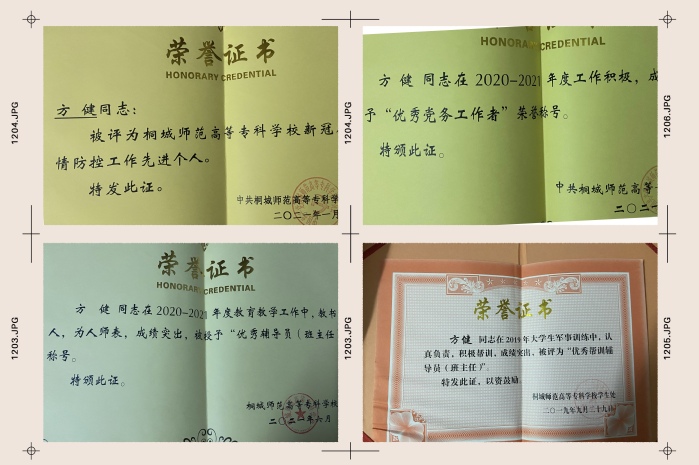 荣誉证书
HONORARY CREDENTIAL
方 健同志：
被评为桐城师范高等专科学校新冠
情防控工作先进个人。
特发此证。
中共桐城师范高等专科学
二〇二一年一月
1204.JPG
1204.JPG
HONORARY CREDENTIAL
方 健 同志在 2020-2021 年度工作积极，成
予“优秀党务工作者”荣誉称号。
特颁此证。
中共桐城师范高等
二〇二
1206.JPG
荣誉证书
HONORARY CREDENTIAL
方 健 同志在 2020-2021 年度教育教学工作中，教书
人，为人师表，成绩突出，被授予“优秀辅导员（班主任
称号。
特颁此证。
桐城师范高等专科学校
二〇二一年六月
1203.JPG
1203.JPG
荣誉证书
方健 同志在2019年大学生军事训练中，认
真负责，积极帮训，成绩突出，被评为“优秀帮训辅
导员（班主任）”。
特发此证，以资鼓励。
桐城师范高等专科学校学生处
二〇一九年九月二十九日
1205.JPG